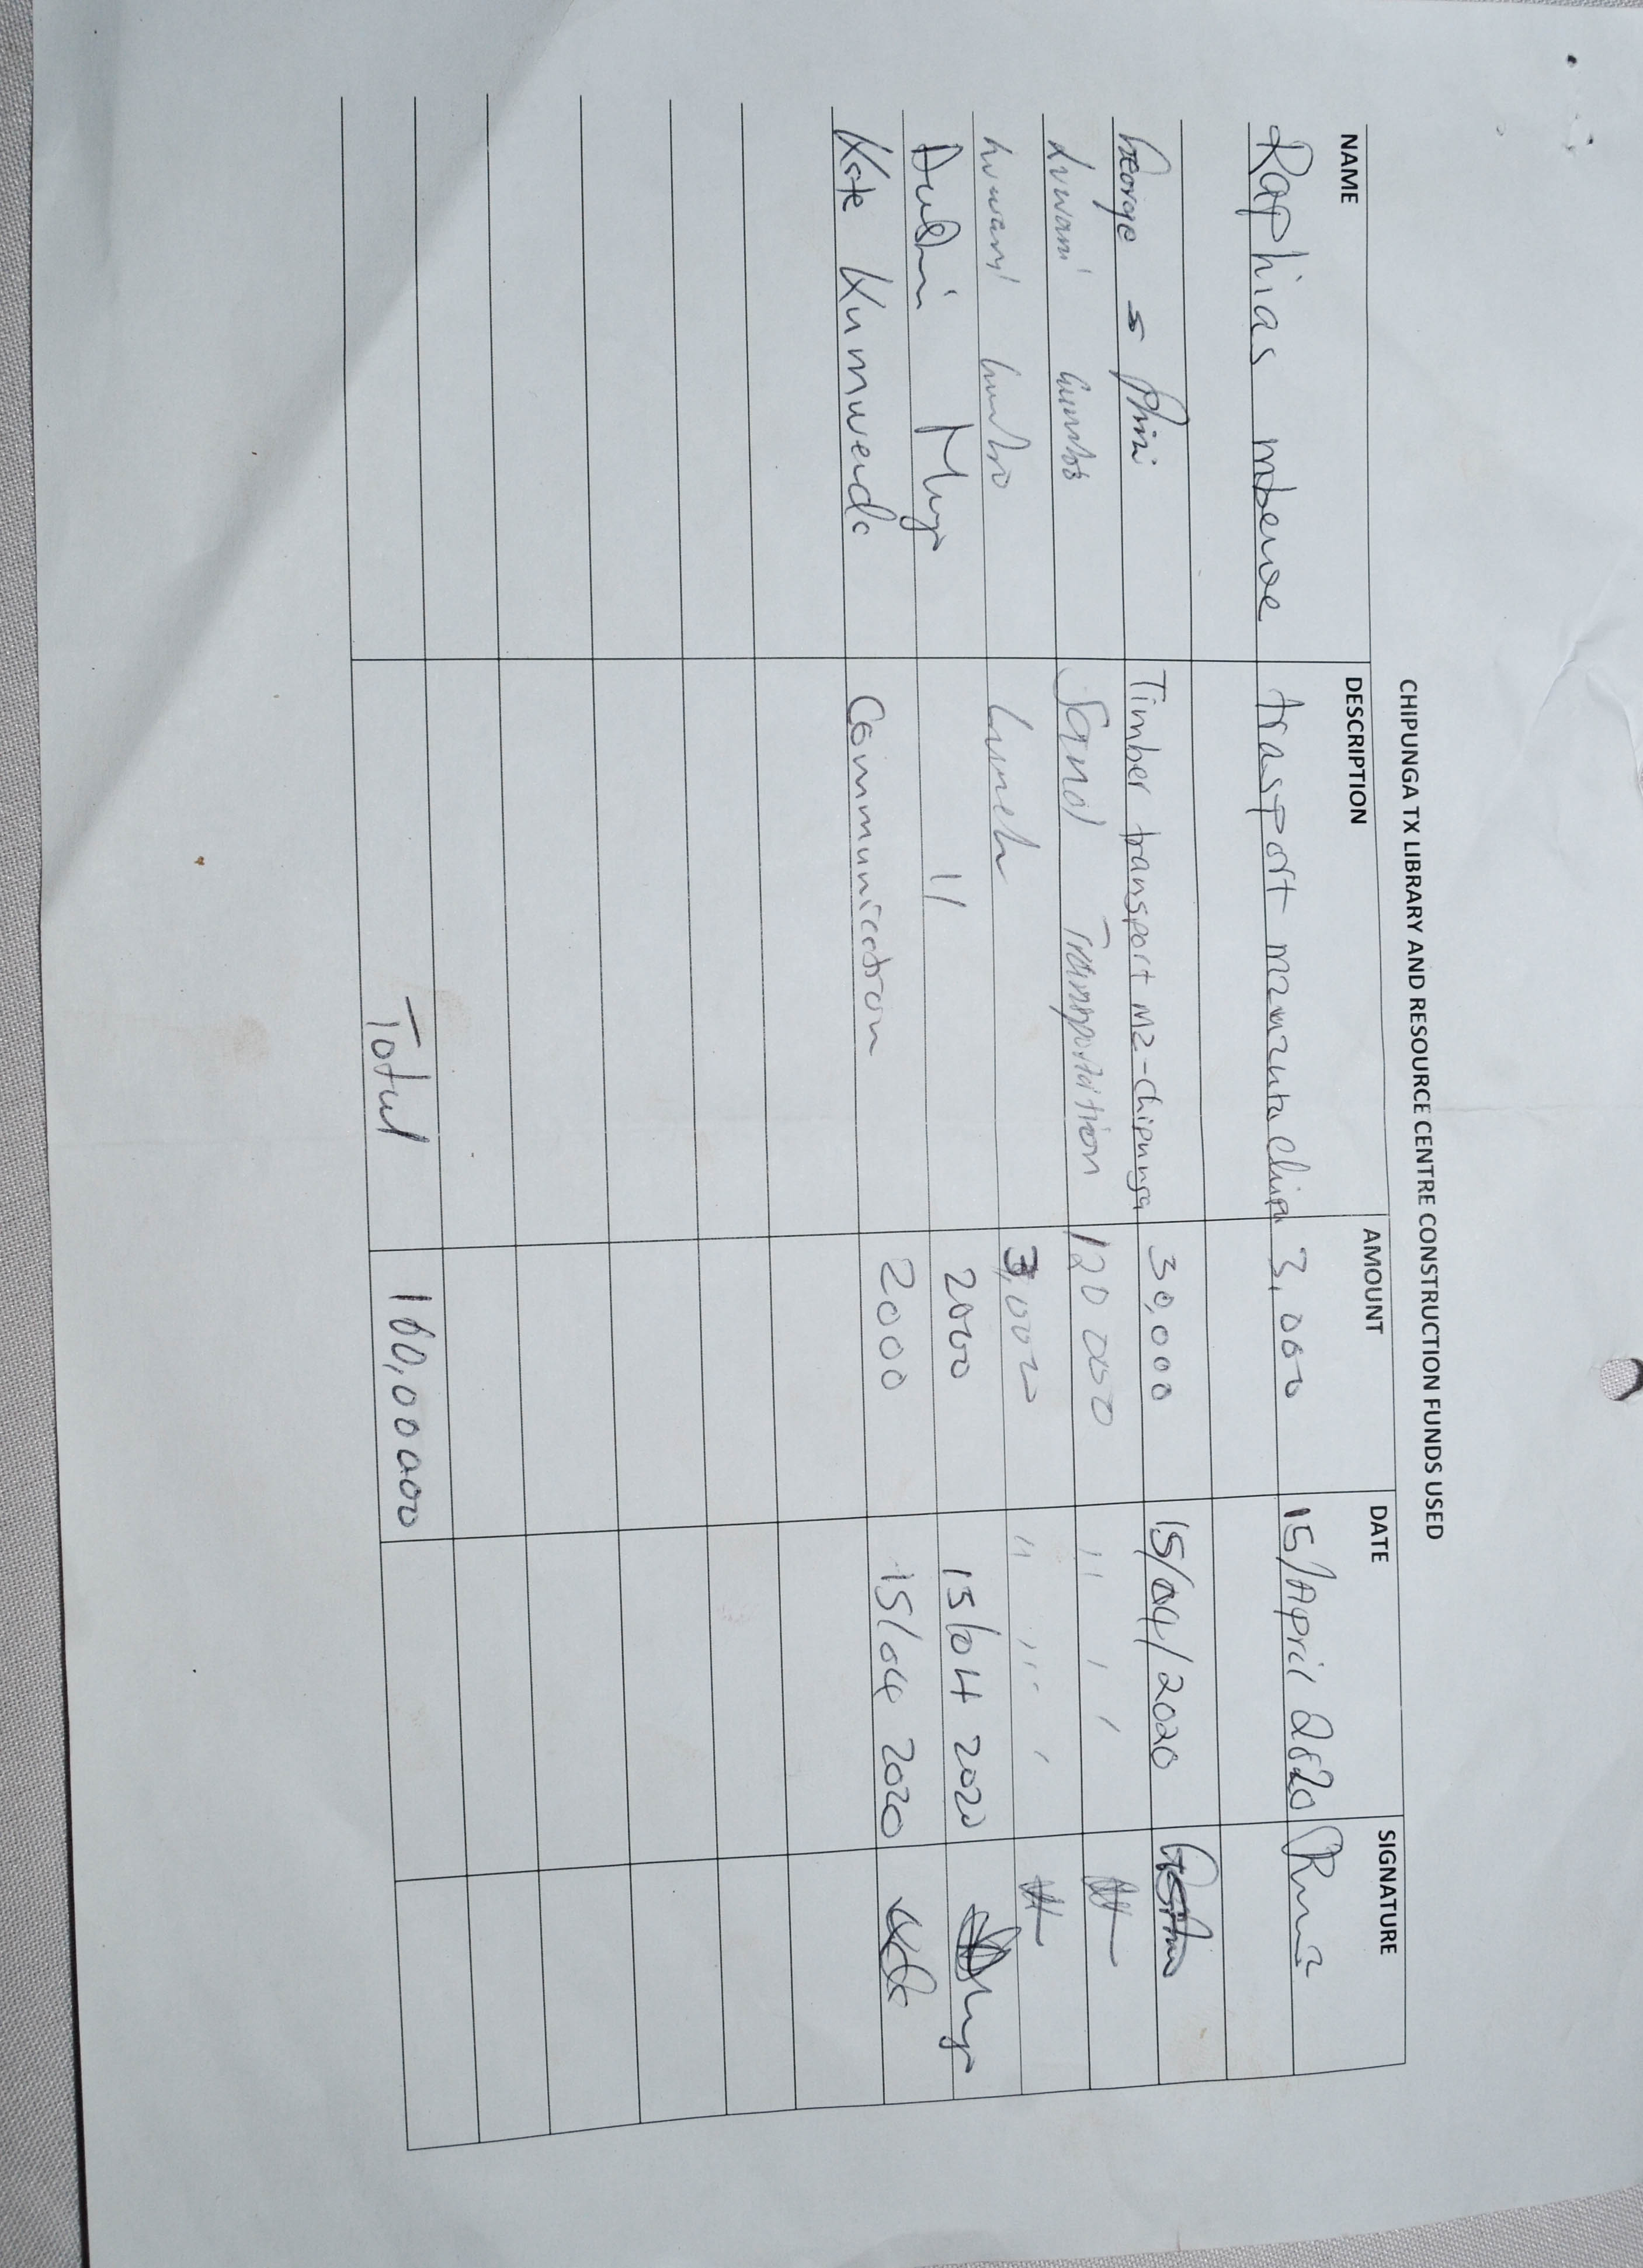 CHIPUNGA TX LIBRARY AND RESOURCE CENTRE CONSTRUCTION FUNDS USED
NAME DESCRIPTION AMOUNT DATE SIGNATURE
Raphias mbewe trasport mzmzuta Chipu 3,000 15/April 2020
George S Phiri Timber transport MZ-Chipunga 30,000 15/04/2020
Luwani Sand Transportation 120 000 " ' '
Luwani Lunch 3,000 "
11 2000 15/04 2020
Kate Kumwenda Communication 2000 15/04 2020
Total 160,00000